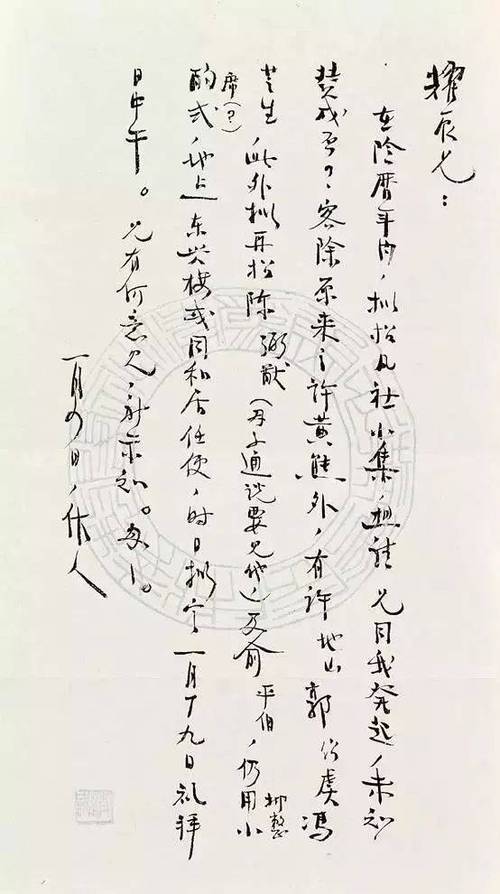 耀辰兄：
在阴历年内，拟招凡社小集，想请 兄同我发起，未知
赞成否？客除原来之许黄熊外，有许地山 郭绍虞 冯
芝生，此外拟再招陈 弼猷（君子通说要见他）及俞 平伯，仍用小
抑整
席（？）
酌式，地点东兴楼或同和居任便，时日拟定一月十九日礼拜
日中午。 兄有何意见，祈示知。匆匆。
一月四日，作人